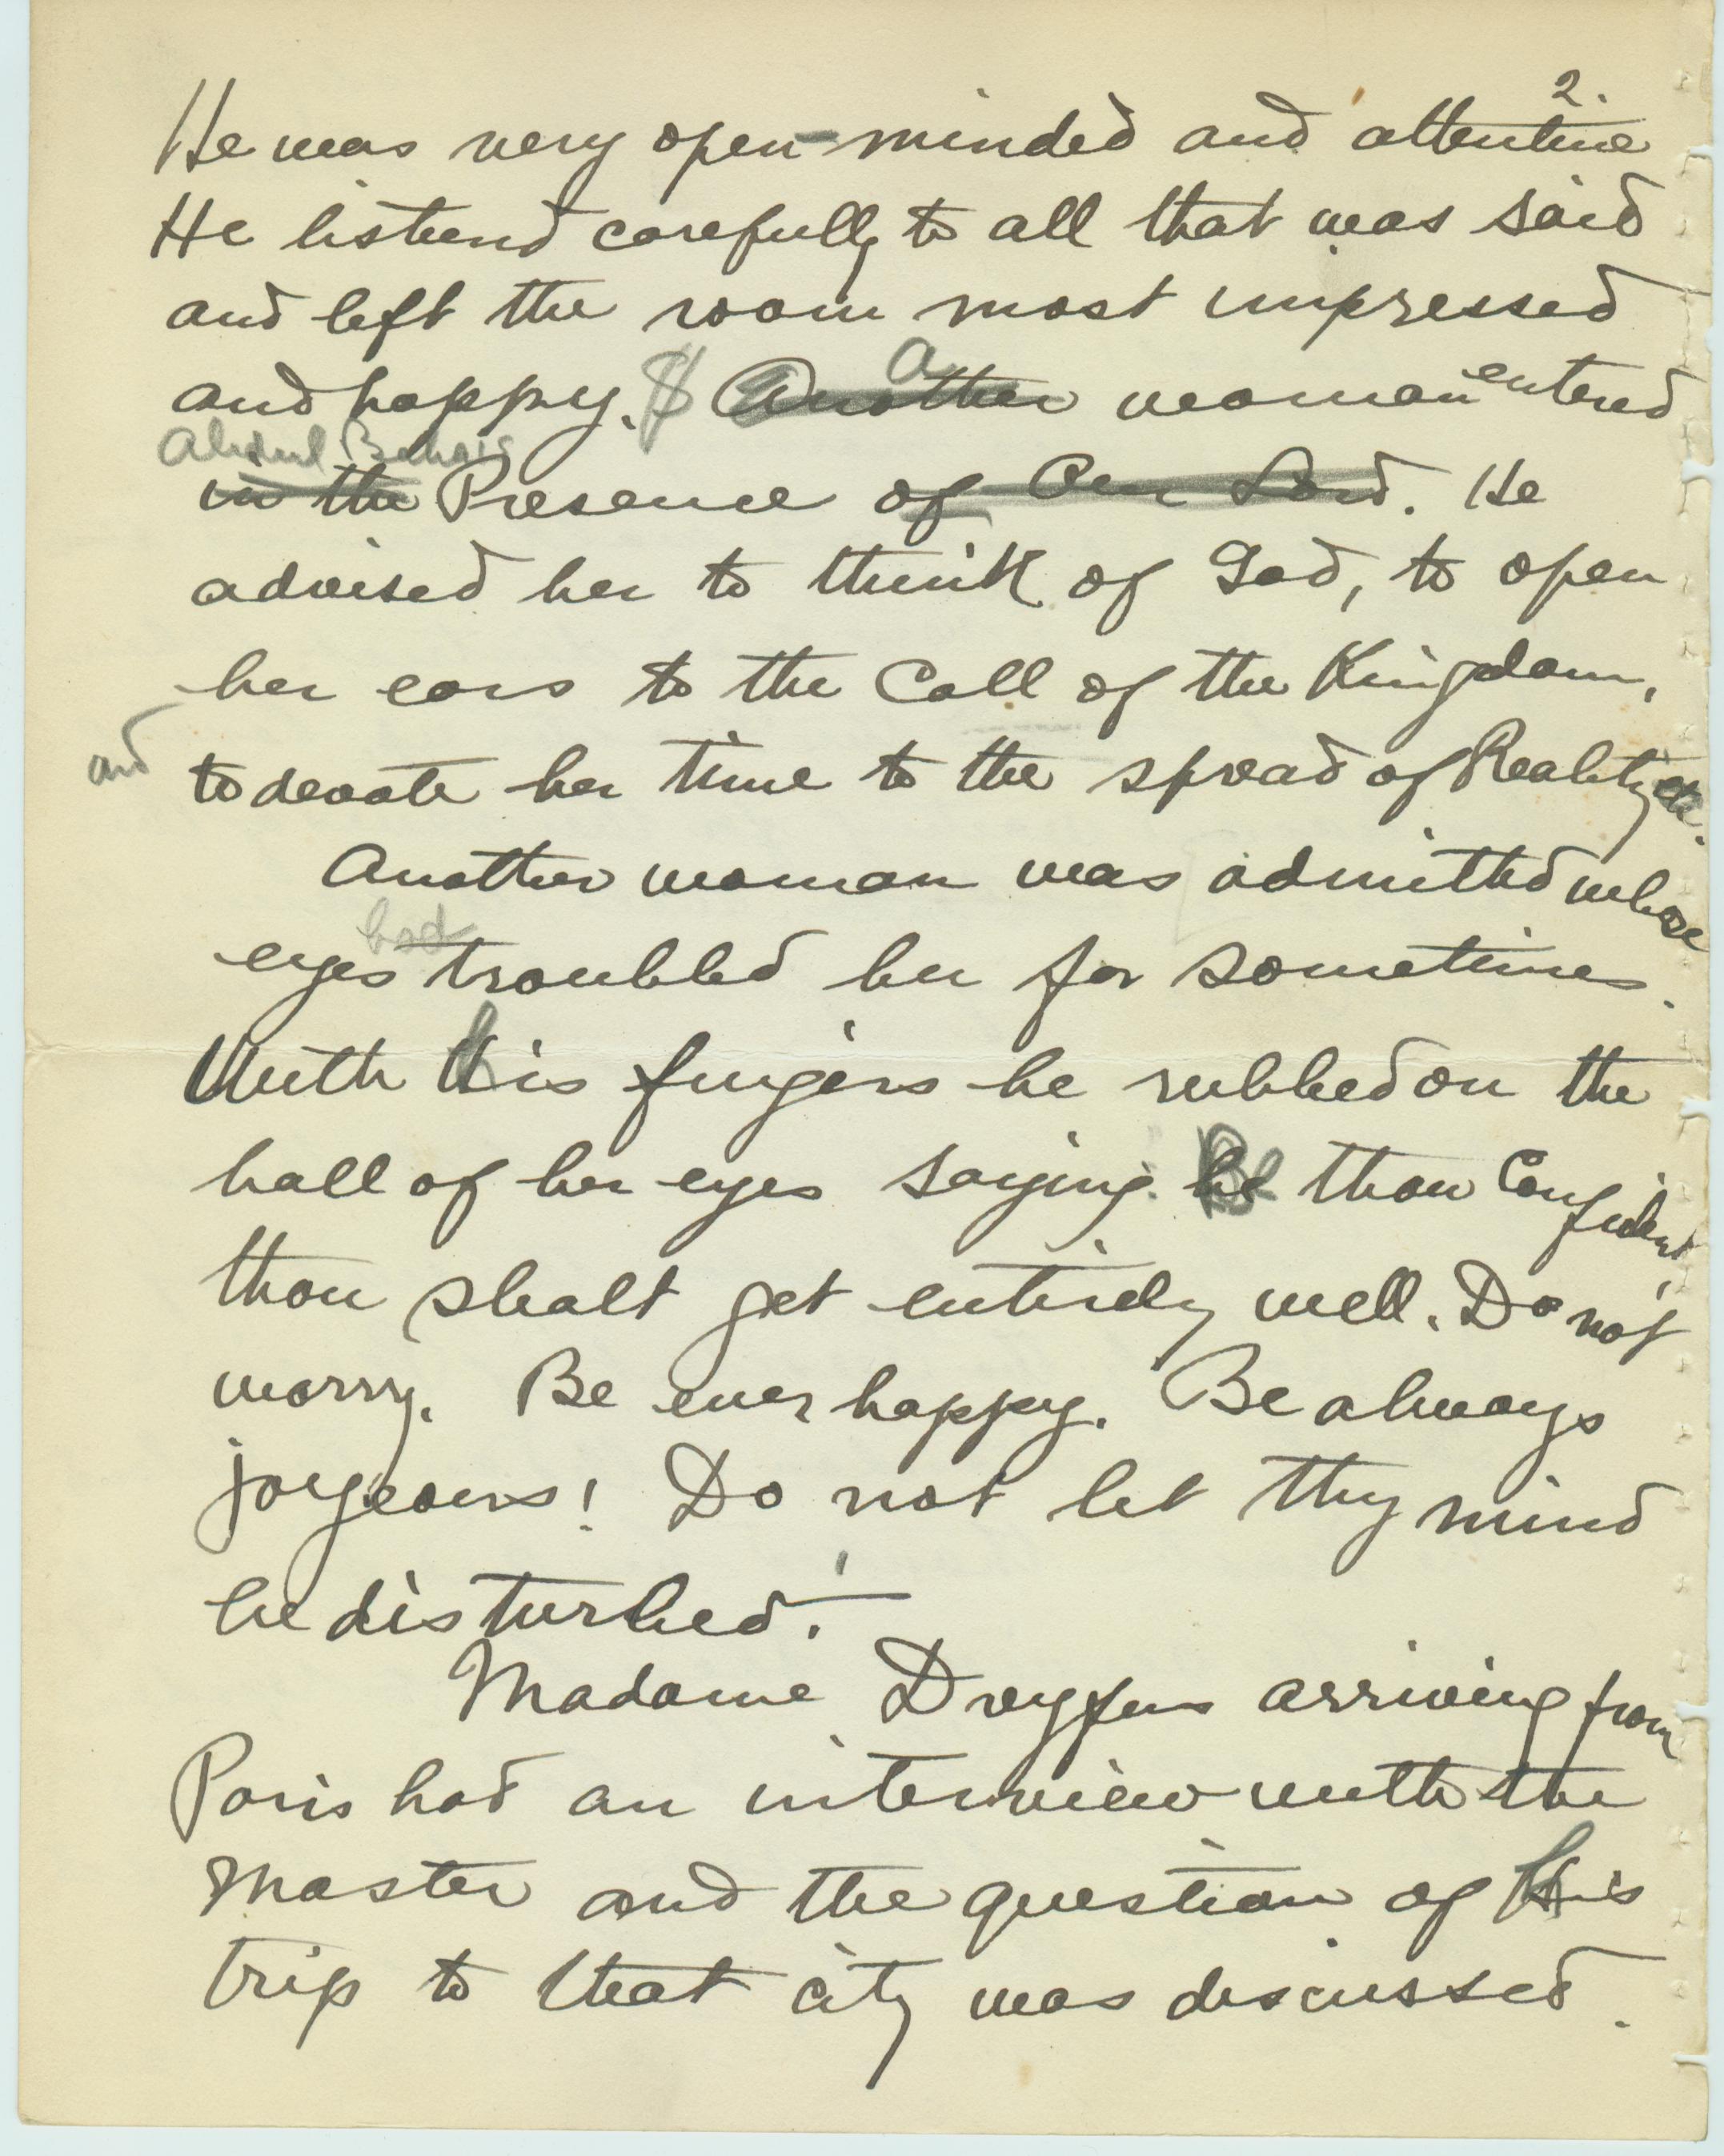 2.
He was very open-minded and attentive
He listend carefully to all that was said
and left the room most impressed
and happy. a
Another woman entered
Abdul Baha's
in the Presence of Our Lord. He
advised her to think of God, to open
her ears to the Call of the Kingdom,
and to devote her time to the spread of Reality etc.
Another woman was admitted whose
had
eyes troubled her for sometimes.
With his fingers he rubbed on the
ball of her eyes saying: Be thou Confident,
thou shalt get entirely well. Do not
worry. Be ever happy. Be always
joyeous! Do not let thy mind
be disturbed!
Madame Dreyfus arriving from
Paris had an interview with the
Master and the question of his
trip to that city was discussed.